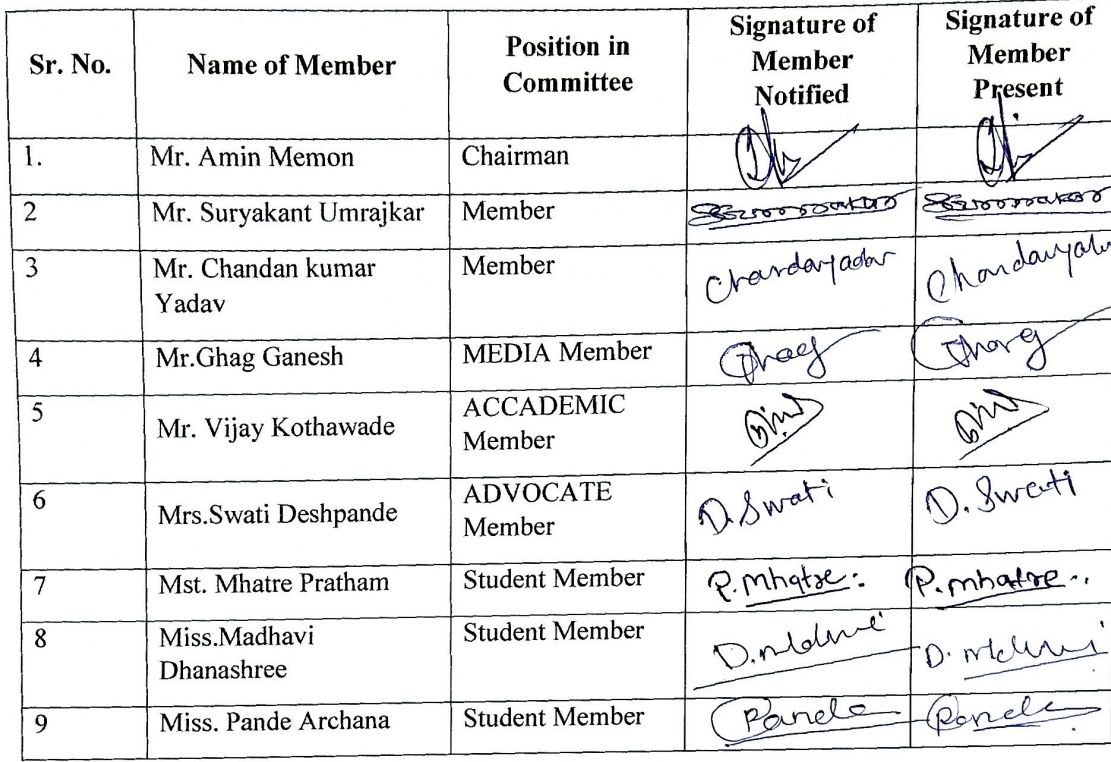 Sr. No. Name of Member Position in Committee Signature of Member Notified Signature of Member Present
1. Mr. Amin Memon Chairman
2 Mr. Suryakant Umrajkar Member
3 Mr. Chandan kumar Yadav Member Chandanyadav Chandanyadav
4 Mr.Ghag Ganesh MEDIA Member Ghag Ghag
5 Mr. Vijay Kothawade ACCADEMIC Member
6 Mrs.Swati Deshpande ADVOCATE Member D. Swati D. Swati
7 Mst. Mhatre Pratham Student Member P. Mhatre P. mhatre
8 Miss.Madhavi Dhanashree Student Member
9 Miss. Pande Archana Student Member Pande Pande